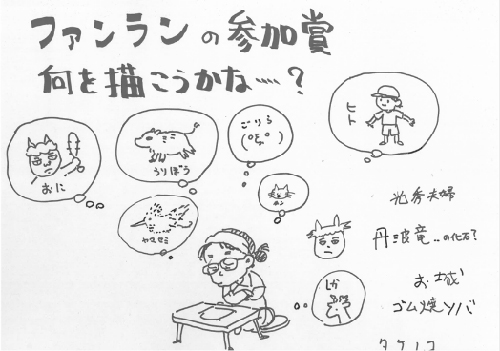 ファンランの参加賞
何を描こうかな……?
おに
うりぼう
ごりら
ヒト
ヤマセミ
ネコ
しか
光秀夫婦
丹波竜…の化石?
お城
ゴム焼ソバ
タケノコ